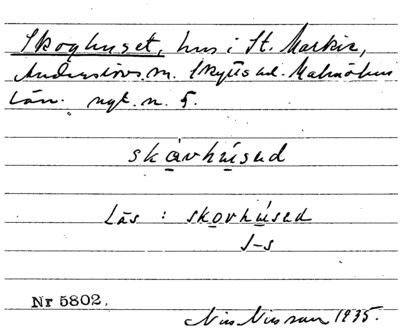 Skoghuset, hus i St. Markie,
Anderslövs sn. Skytts hd. Malmöhus
Län. nyt. n. 5.
skavhúsed
Läs : skovhúsed
s-s
Nr 5802.
Nils Nilsson 1935.